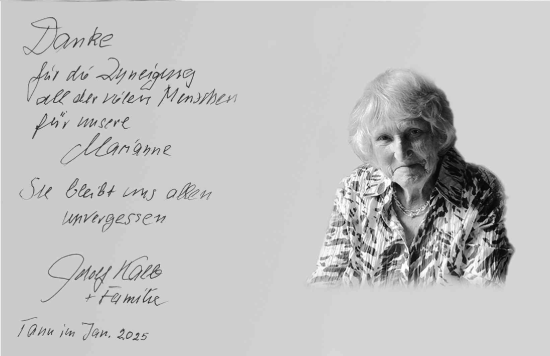 Danke
für die Zuneigung
all der vielen Menschen
für unsere
Marianne
Sie bleibt uns allen
unvergessen
+ Familie
Tann im Jan. 2025